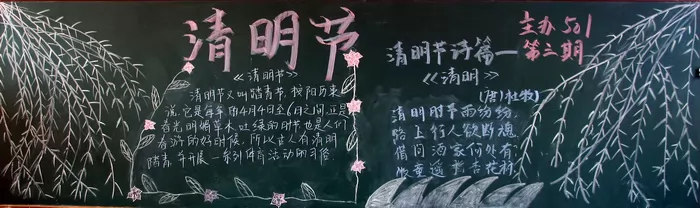 清明节
主办501
第二期
《清明节》
清明节又叫踏青节,按阳历来
说,它是每年的4月4日至6日之间,正是
春光明媚草木吐绿的时节也是人们
春游的好时候,所以古人有清明
踏青,并开展一系列体育活动的习俗
清明节诗篇一
《清明》
(唐)杜牧
清明时节雨纷纷,
路上行人欲断魂,
借问酒家何处有,
牧童遥指杏花村